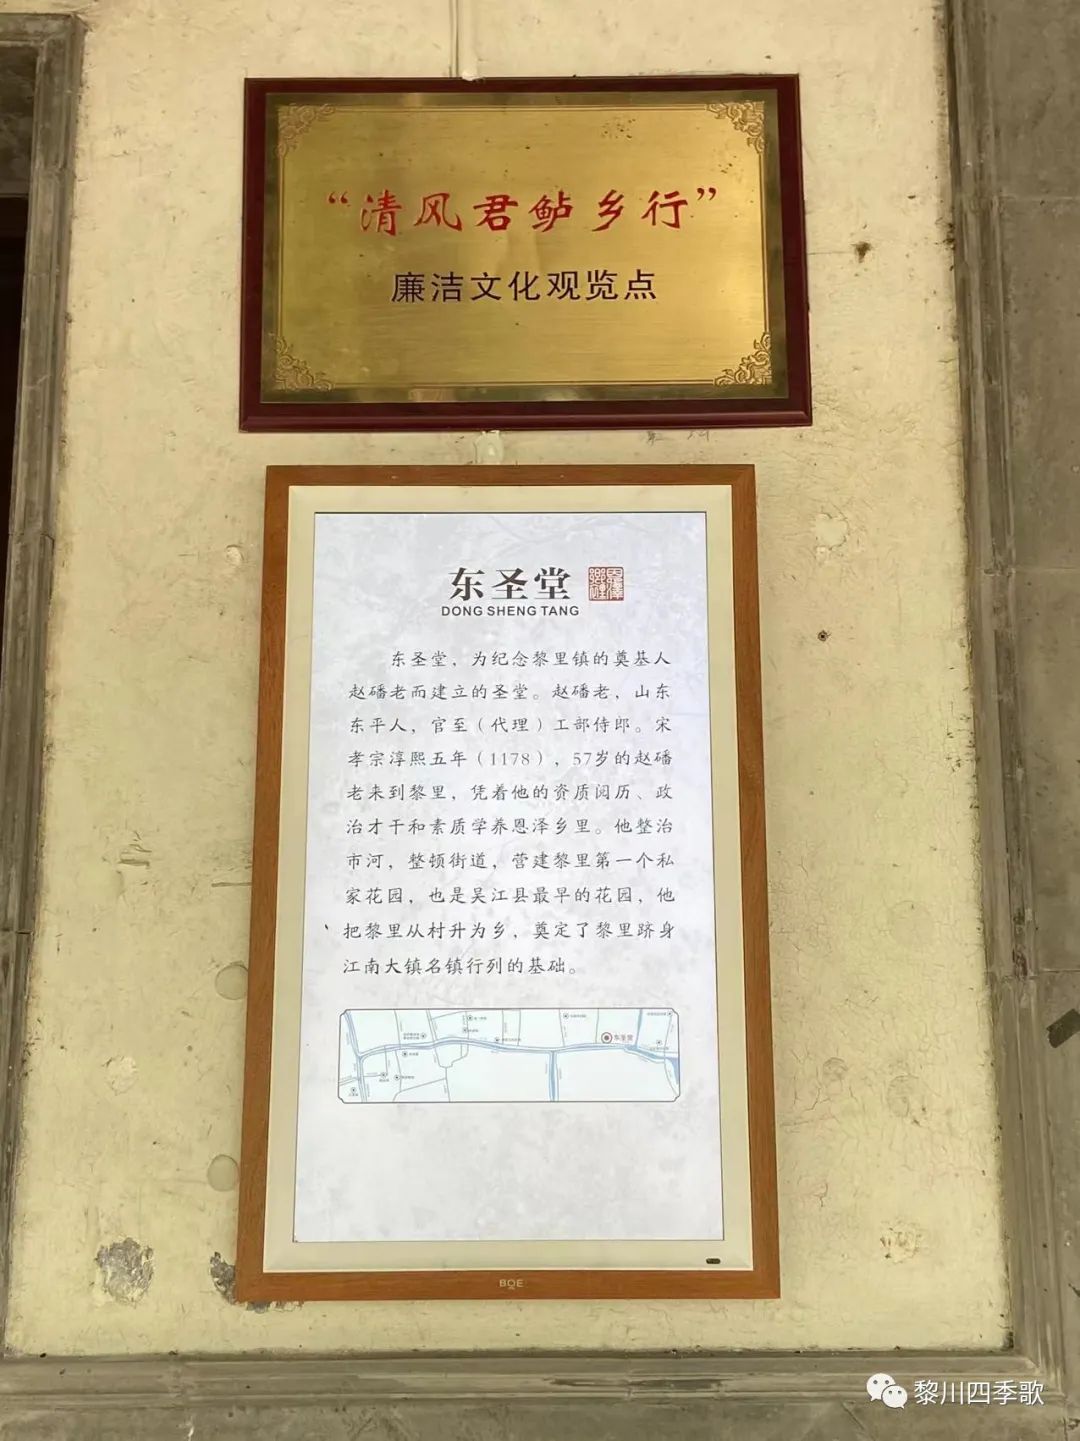 “清风君鲈乡行”
廉洁文化观览点
东圣堂
DONG SHENG TANG
东圣堂，为纪念黎里镇的奠基人
赵磻老而建立的圣堂。赵磻老，山东
东平人，官至（代理）工部侍郎。宋
孝宗淳熙五年（1178），57岁的赵磻
老来到黎里，凭着他的资质阅历、政
治才干和素质学养恩泽乡里。他整治
市河，整顿街道，营建黎里第一个私
家花园，也是吴江县最早的花园，他
把黎里从村升为乡，奠定了黎里跻身
江南大镇名镇行列的基础。
东圣堂
BOE
黎川四季歌